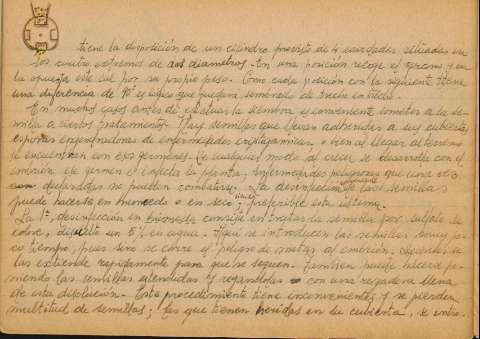 tiene la disposición de un cilindro provisto de 4 cavidades situadas en
los cuatro extremos de dos diametros. En una posición recoge el grano y en
la opuesta este cae por su propio peso. Como cada posición con la siguiente tiene
una diferencia de 90º es lógico que quedará sembrado de trecho en trecho.
En muchos casos antes de efectuar la siembra es conveniente someter a la se-
milla a ciertos tratamientos. Hay semillas que llevan adheridas a su cubierta
esporas engendradoras de enfermedades criptogámicas o bien al llegar al terreno
se encuentran con esos germenes. De cualquier modo al crecer se desarrolla con el
embrión ese germen e infecta la planta. Enfermedades peligrosas que una vez
declaradas no se pueden combatir. La desinfección de las semillas
puede hacerse en húmedo o en seco; preferible este sistema.
La 1ª, desinfección en húmedo consiste en tratar la semilla por sulfato de
cobre, disuelto un 5% en agua. Aquí se introducen las semillas muy po-
co tiempo, pues sino se corre el peligro de matar al embrión. Después se
las extiende rapidamente para que se sequen. Tambien puede hacerse po-
niendo las semillas extendidas y rogandolas con una regadera llena
de esta disolución. Este procedimiento tiene inconvenientes y se pierden
multitud de semillas; las que tienen heridas en su cubierta, se intro-